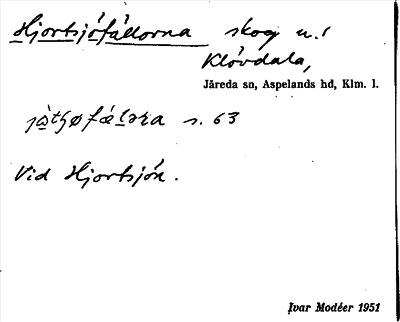 Hjortsjöfällorna skog u.
Klövdala,
Järeda sn, Aspelands hd, Klm. l.
s. 63
Vid Hjortsjön.
Ivar Modéer 1951